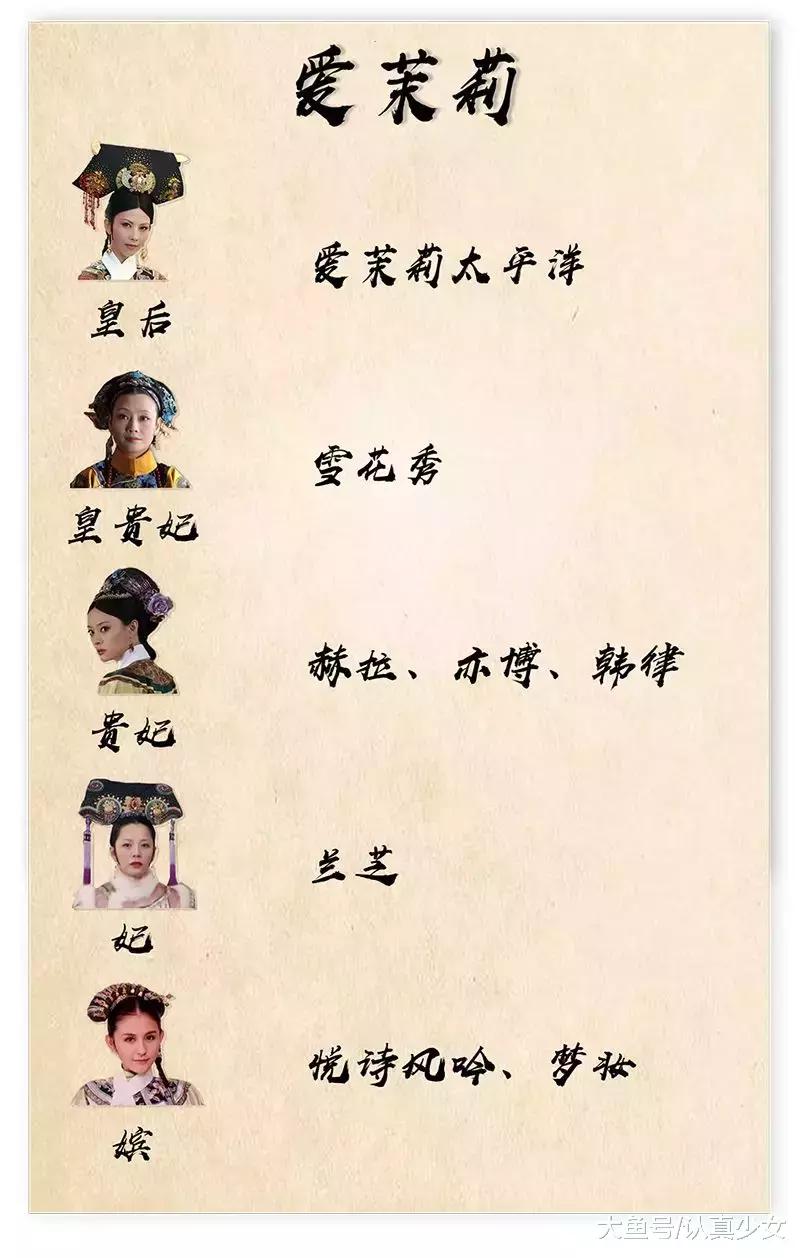 爱茉莉
爱茉莉太平洋
皇后
雪花秀
皇贵妃
赫拉、亦博、韩律
贵妃
兰芝
妃
悦诗风吟、梦妆
嫔
大鱼号/认真少女